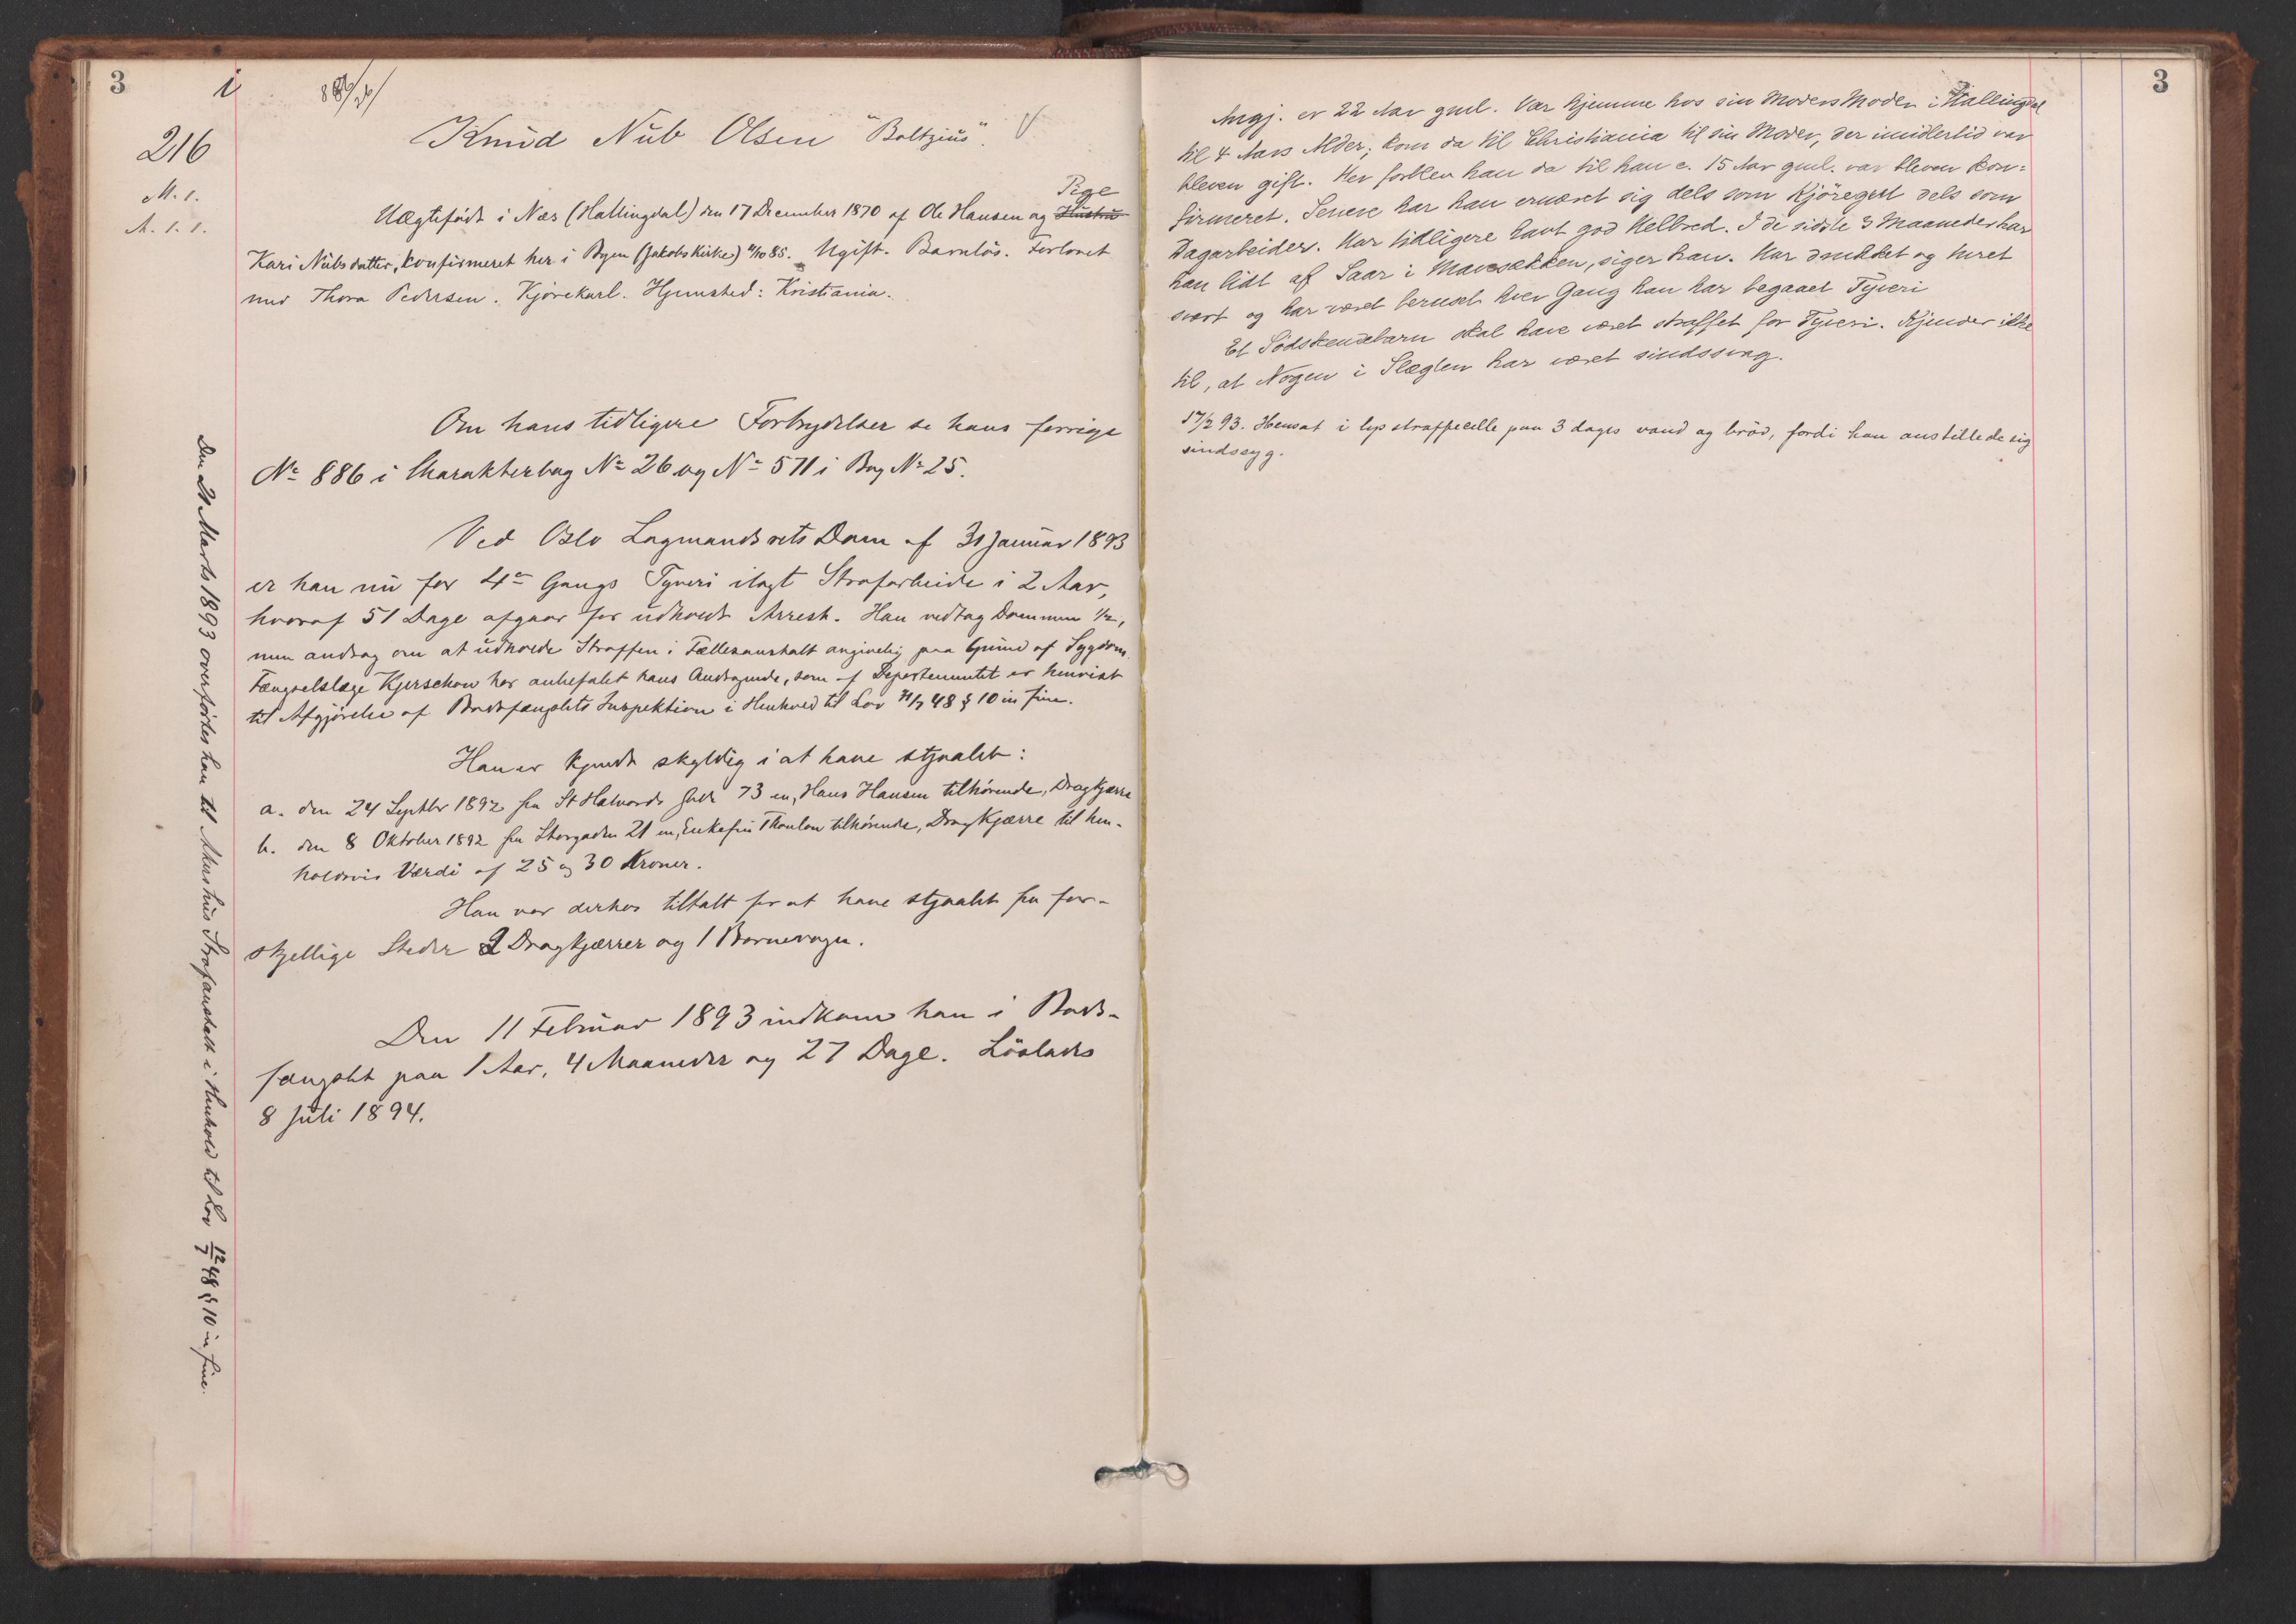 3
i
886/26/
216
M. 1.
A. 1. 1.
Knud Nub Olsen "Boltzius". V
Pige
Uægtefødt i Næs (Hallingdal) den 17 December 1870 af Ole Hansen og Hustru
Kari Nubsdatter, konfirmeret her i Byen (Jakobs Kirke) 4/10 85. Ugift. Barnløs. Forlovet
med Thora Pedersen. Kjørekarl. Hjemsted: Kristiania.
Om hans tidligere Forbrydelser se hans forrige
No 886 i Charakterbog No 26 og No 571 i Bog No 25.
Ved Oslo Lagmandsrets Dom af 31 Januar 1893
er han nu for 4de Gangs Tyveri ilagt Strafarbeide i 2 Aar,
hvoraf 51 Dage afgaar for udholdt Arrest. Han vedtog Dommen 1/2,
men androg om at udholde Straffen i Fællesanstalt angivelig paa Grund af Sygdom.
Fængselslæge Kjerschow har anbefalet hans Andragende, som af Departementet er henvist
til Afgjørelse af Bodsfængslets Inspektion i Henhold til Lov 12/7 48 § 10 in fine.
Han er kjendt skyldig i at have stjaalet:
a. den 24 Septbr 1892 fra St Halvards Gade 73 en, Hans Hansen tilhørende, Dragkjærre
b. den 8 Oktober 1892 fra Storgaden 21 en, Enkefru Thaulow tilhørende, Dragkjærre til hen-
holdsvis Værdi af 25 og 30 Kroner.
Han var derhos tiltalt for at have stjaalet fra for-
skjellige Steder 2 Dragkjærrer og 1 Barnevogn.
Den 11 Februar 1893 indkom han i Bods-
fængslet paa 1 Aar, 4 Maaneder og 27 Dage. Löslades
8 Juli 1894.
Den 21 Marts 1893 overførtes han til Akershus Strafanstalt i Henhold til Lov 12/7 48 § 10 in fine.
3
Angj. er 22 Aar gml. Var hjemme hos sin Moders Moder i Hallingdal
til 4 Aars Alder; kom da til Christiania til sin Moder, der imidlertid var
bleven gift. Her forblev han da til han c. 15 Aar gml. var bleven kon=
firmeret. Senere har han ernæret sig dels som Kjöregut dels som
Dagarbeider. Har tidligere havt god Helbred. I de sidste 3 Maaneder har
han lidt af Saar i Mavesækken, siger han. Har drukket og turet
svært og har været beruset hver Gang han har begaaet Tyveri
Et Södskendebarn skal have været straffet for Tyveri. Kjender ikke
til, at Nogen i Slægten har været sindssvag.
17/2 93. Hensat i lys straffecelle paa 3 dages vand og bröd, fordi han anstillede sig
sindssyg.